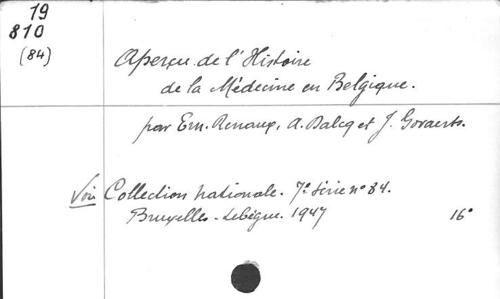 19
810
(84)
Aperçu de l'Histoire
de la Médecine en Belgique.
par Em. Renaux, A. Dalcq et J. Govaerts.
Voir Collection nationale. 7e série n° 84.
Bruxelles - Lebègue. 1947 16°